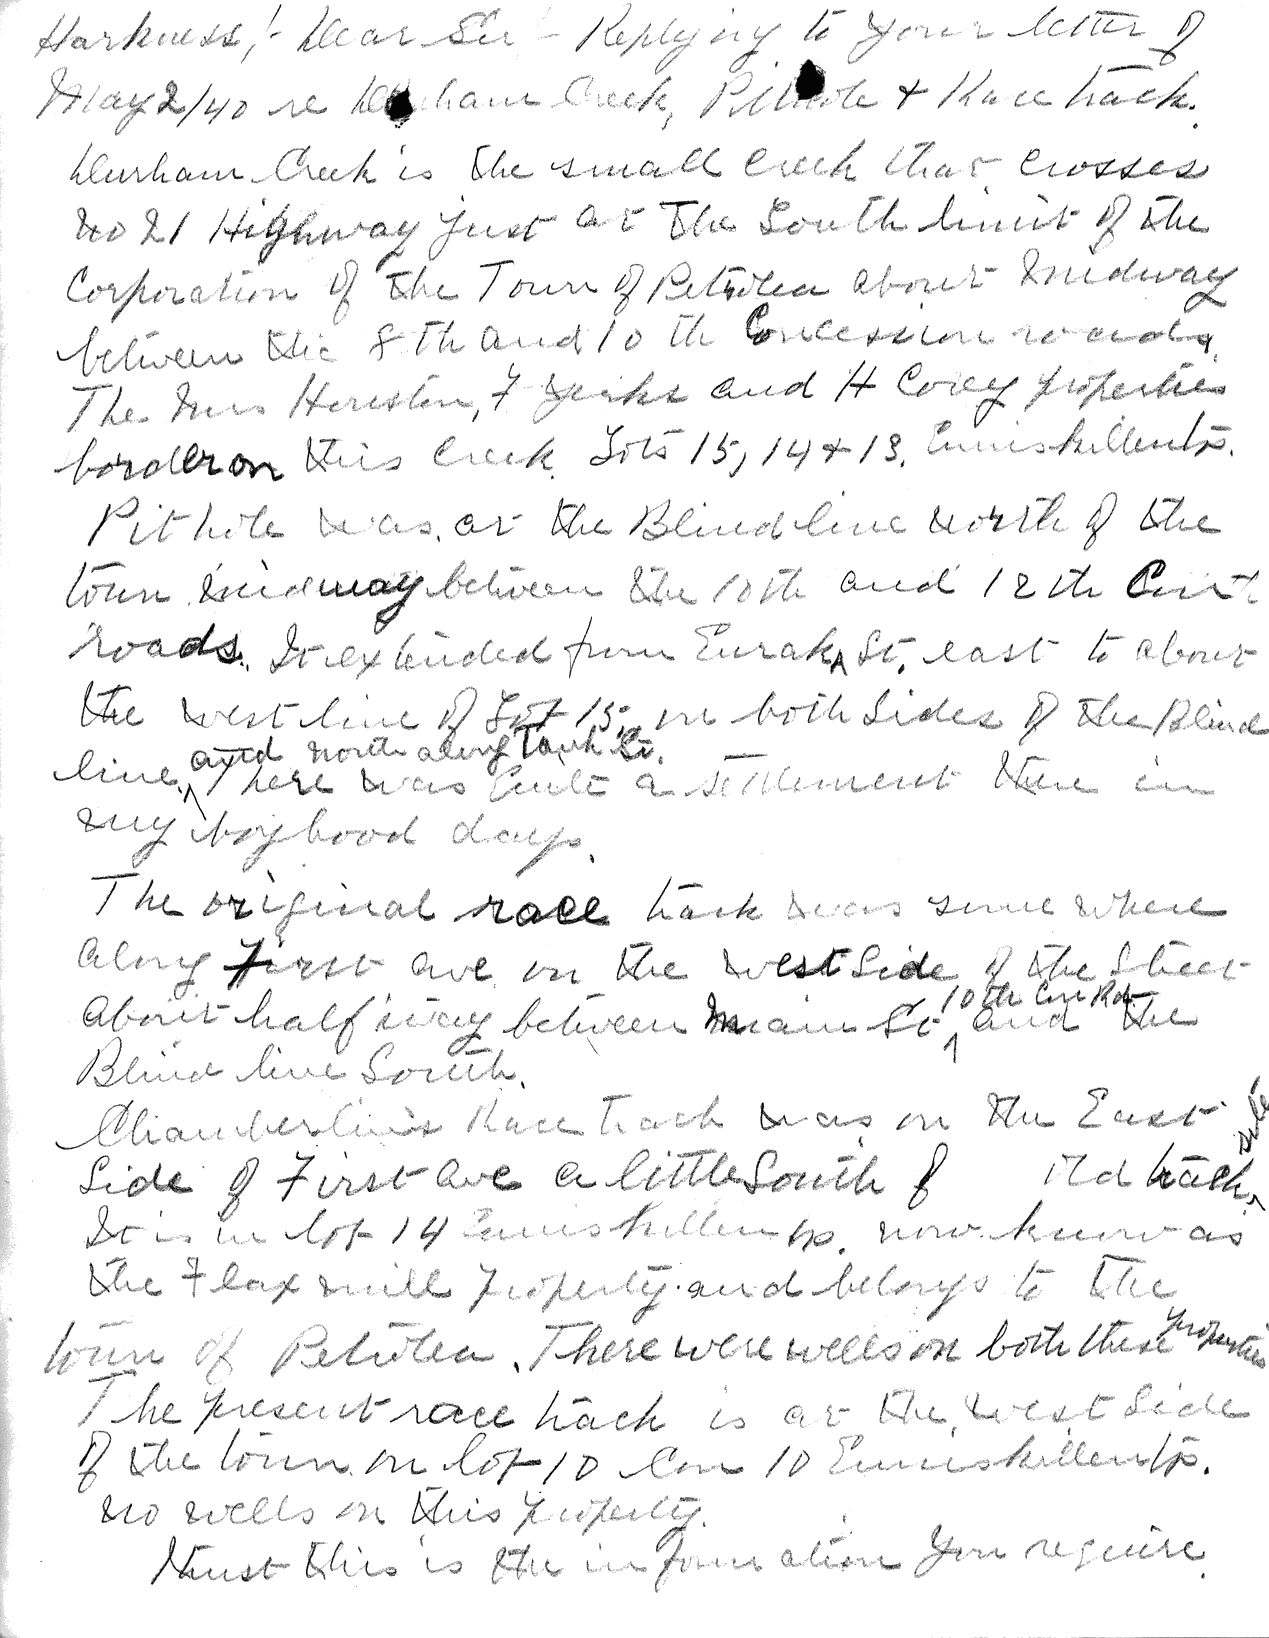 Harkness,!- Dear Sir - Replying to your letter of
May 2/40 re Durham Creek, Pithole + Race track.
Durham Creek is the small creek that crosses
No 21 Highway just at the South limit of the
Corporation of the Town of Petrolea about midway
between the 8th and 10th Concession roads,
The Mrs Heuston, F Yerks and H Corey properties
border on this Creek Lots 15, 14 + 13, Enniskillen tp.
Pit hole was at the Blind line north of the
town midway between the 10th and 12th
roads. It extended from Eureka St. east to about
the west line of Lot 15, on both sides of the Blind
line, and north along Tank St. There was quite a settlement there in
my boyhood days.
The original race track was some where
along First ave on the west side of the street
about half way between Main St 10th Con Rd and the
Blind line South.
Chamberlin's Race track was on the East
side of First ave a little South of old track site
It is in lot 14 Enniskillen tp. now know as
the Flax mill property and belongs to the
town of Petrolea. There were wells on both these properties
The present race track is at the west side
of the town on lot 10 Con 10 Enniskillen tp.
no wells on this property.
Trust this is the information you require.